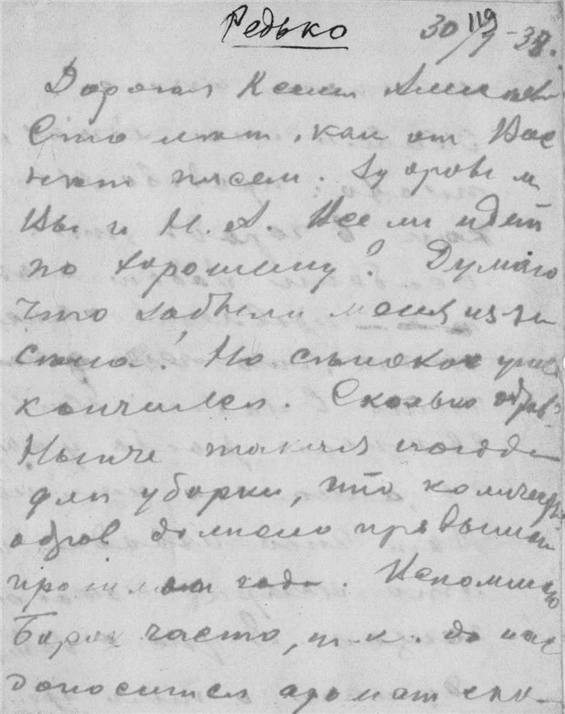 Редько
119
30/7-38.
Дорогая Ксения
Сто лет, как от Вас
нет писем. Здоровы ли
Вы и Н. А. Все ли идет
по хорошему? Думаю
что забыли меня из-за
сена! Но сенокос уже
кончился. Сколько
Нынче такая погода
для уборки, что
должно превышать
прошлого года. Вспоминаю
Борок часто, т. к. до нас
доносится аромат ско-